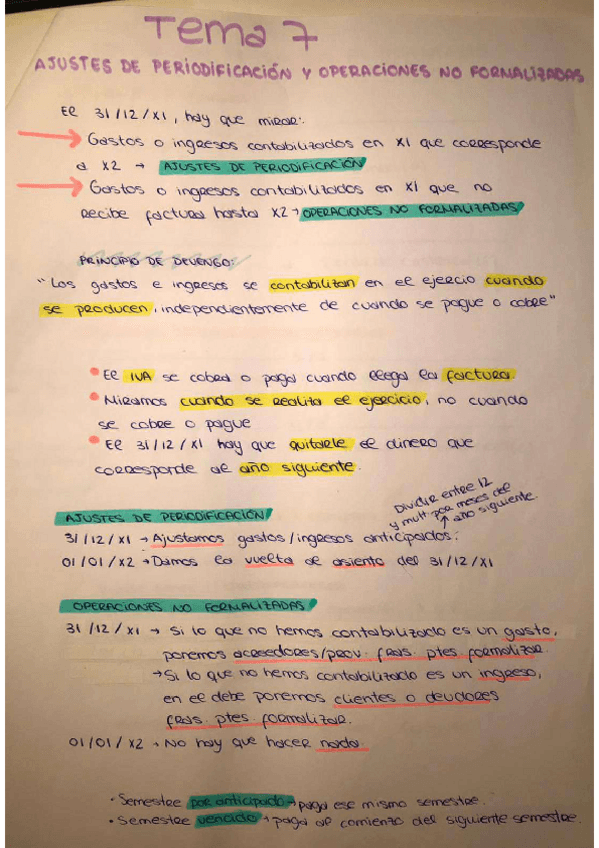 Tema 7
AJUSTES DE PERIODIFICACIÓN Y OPERACIONES NO FORMALIZADAS
El 31/12/X1, hay que mirar:
→ Gastos o ingresos contabilizados en X1 que corresponde
a X2 → AJUSTES DE PERIODIFICACIÓN
→ Gastos o ingresos contabilizados en X1 que no
recibe factura hasta X2 → OPERACIONES NO FORMALIZADAS
PRINCIPIO DE DEVENGO:
"Los gastos e ingresos se contabilizan en el ejercio cuando
se producen, independientemente de cuando se pague o cobre"
• El IVA se cobra o paga cuando llega la factura.
• Miramos cuando se realita el ejercicio, no cuando
se cobre o pague
• El 31/12/X1 hay que quitarle el dinero que
corresponde al año siguiente.
Dividir entre 12
y mult. por meses del
año siguiente.
AJUSTES DE PERIODIFICACIÓN
31/12/X1 → Ajustamos gastos/ingresos anticipados.
01/01/X2 → Damos la vuelta al asiento del 31/12/X1
OPERACIONES NO FORMALIZADAS
31/12/X1 → Si lo que no hemos contabilizado es un gasto,
ponemos acreedores/prov. fras. ptes formalizar.
→ Si lo que no hemos contabilizado es un ingreso,
en el debe ponemos clientes o deudores
fras. ptes. formalizar.
01/01/X2 → No hay que hacer nada.
• Semestre por anticipado → paga ese mismo semestre.
• Semestre vencido → paga al comienzo del siguiente semestre.